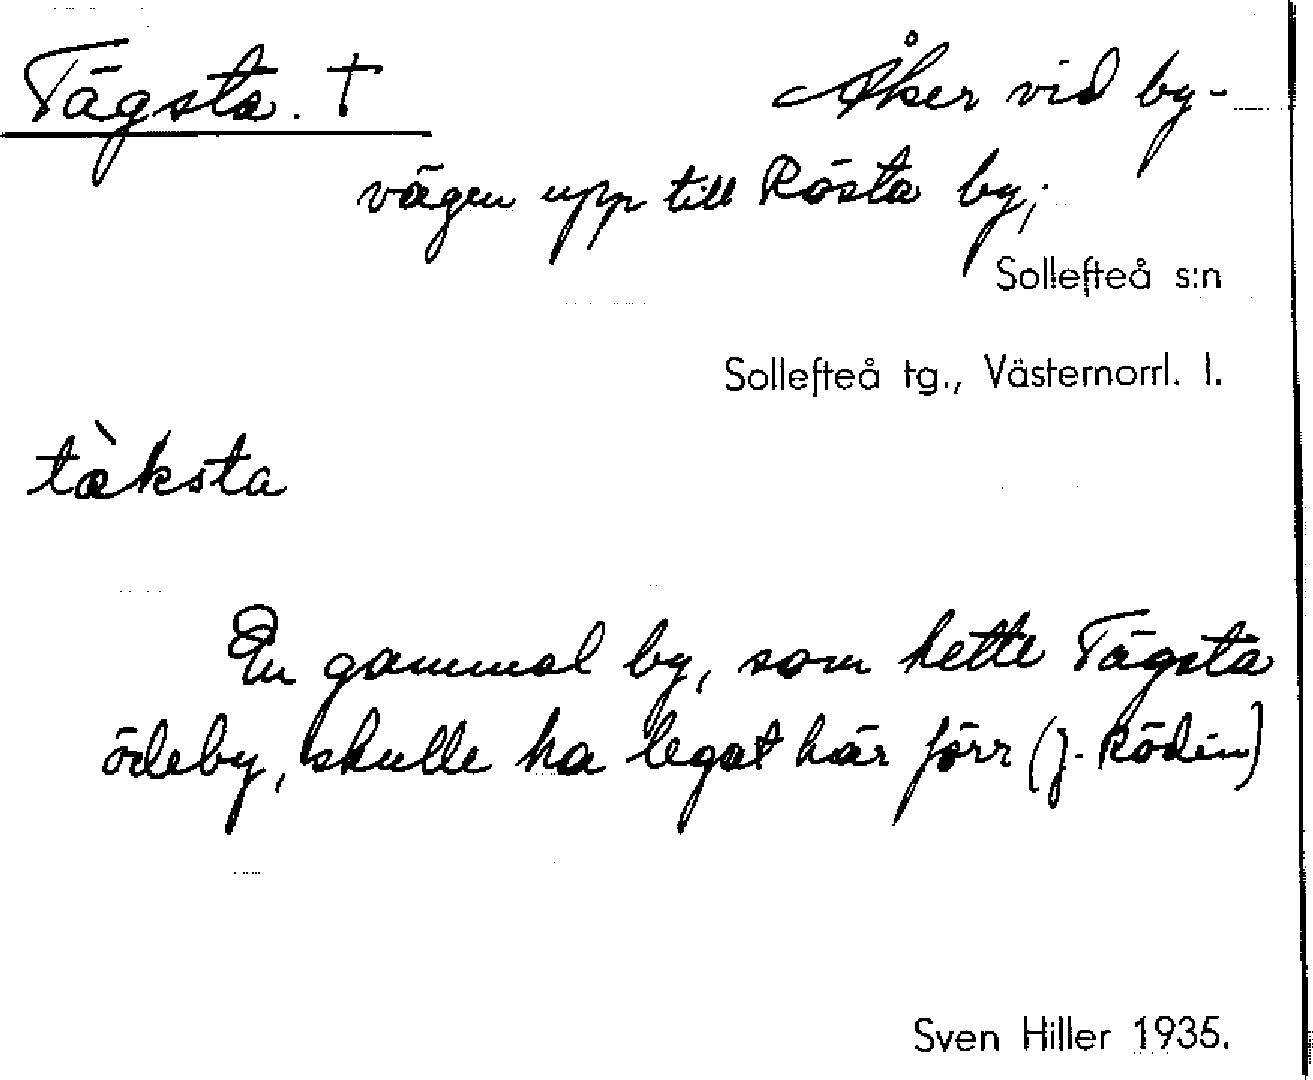 Tägsta. † Åker vid by-
vägen upp till Rösta by;
Sollefteå s:n
Sollefteå tg., Västernorrl. l.
tæ̀ksta
En gammal by, som hette Tägsta
ödeby, skulle ha legat här förr (J. Rödin)
Sven Hiller 1935.